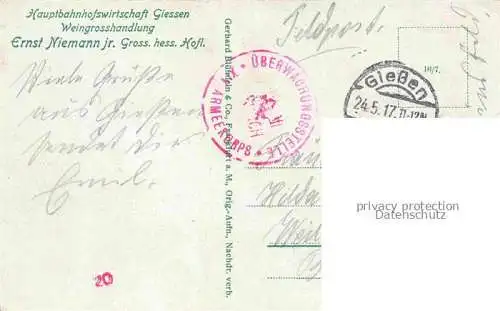 Hauptbahnhofswirtschaft Giessen
Weingrosshandlung
Ernst Niemann jr. Gross. hess. Hofl.
Viele Grüße
aus Gießen
sendet dir
Emil.
20
Gerhard Blümlein & Co., Frankfurt a. M., Orig.-Aufn., Nachdr. verb.
Feldpost.
ÜBERWACHUNGSSTELLE
ARMEEKORPS
10/7.
Gießen
24.5.17. 11-12
Hilda
Weil
privacy protection
Datenschutz